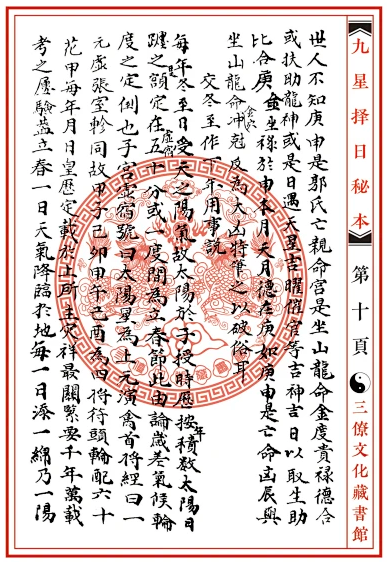 九星择日秘本
第十頁
三僚文化藏書館
世人不知庚申是郭氏亡親命宮是坐山龍命金度貴祿德合
或扶助龍神或是日遇大星吉曜催官等吉神吉日以取生助
比合庚金坐祿於申本月天月德在庚如庚申是亡命凶辰與
坐山龍命冲尅反為大凶特筆之以破俗耳
交冬至作下年用事說
每年冬至日受天之陽氣故太陽於子授時歷按積年數太陽日
躔之額定在五十分或一度間為立春節此由論歲差氣候輪
度之定例也子宮虛宿號曰太陽星為上元演禽首將經曰一
元虛張室軫同故甲子己卯甲午己酉為四將符頭輪配六十
花甲每年月日皇歷定載於上所主灾祥最關緊要千年萬載
考之屢驗蓋立春一日天氣降臨於地每一日添一線乃一陽